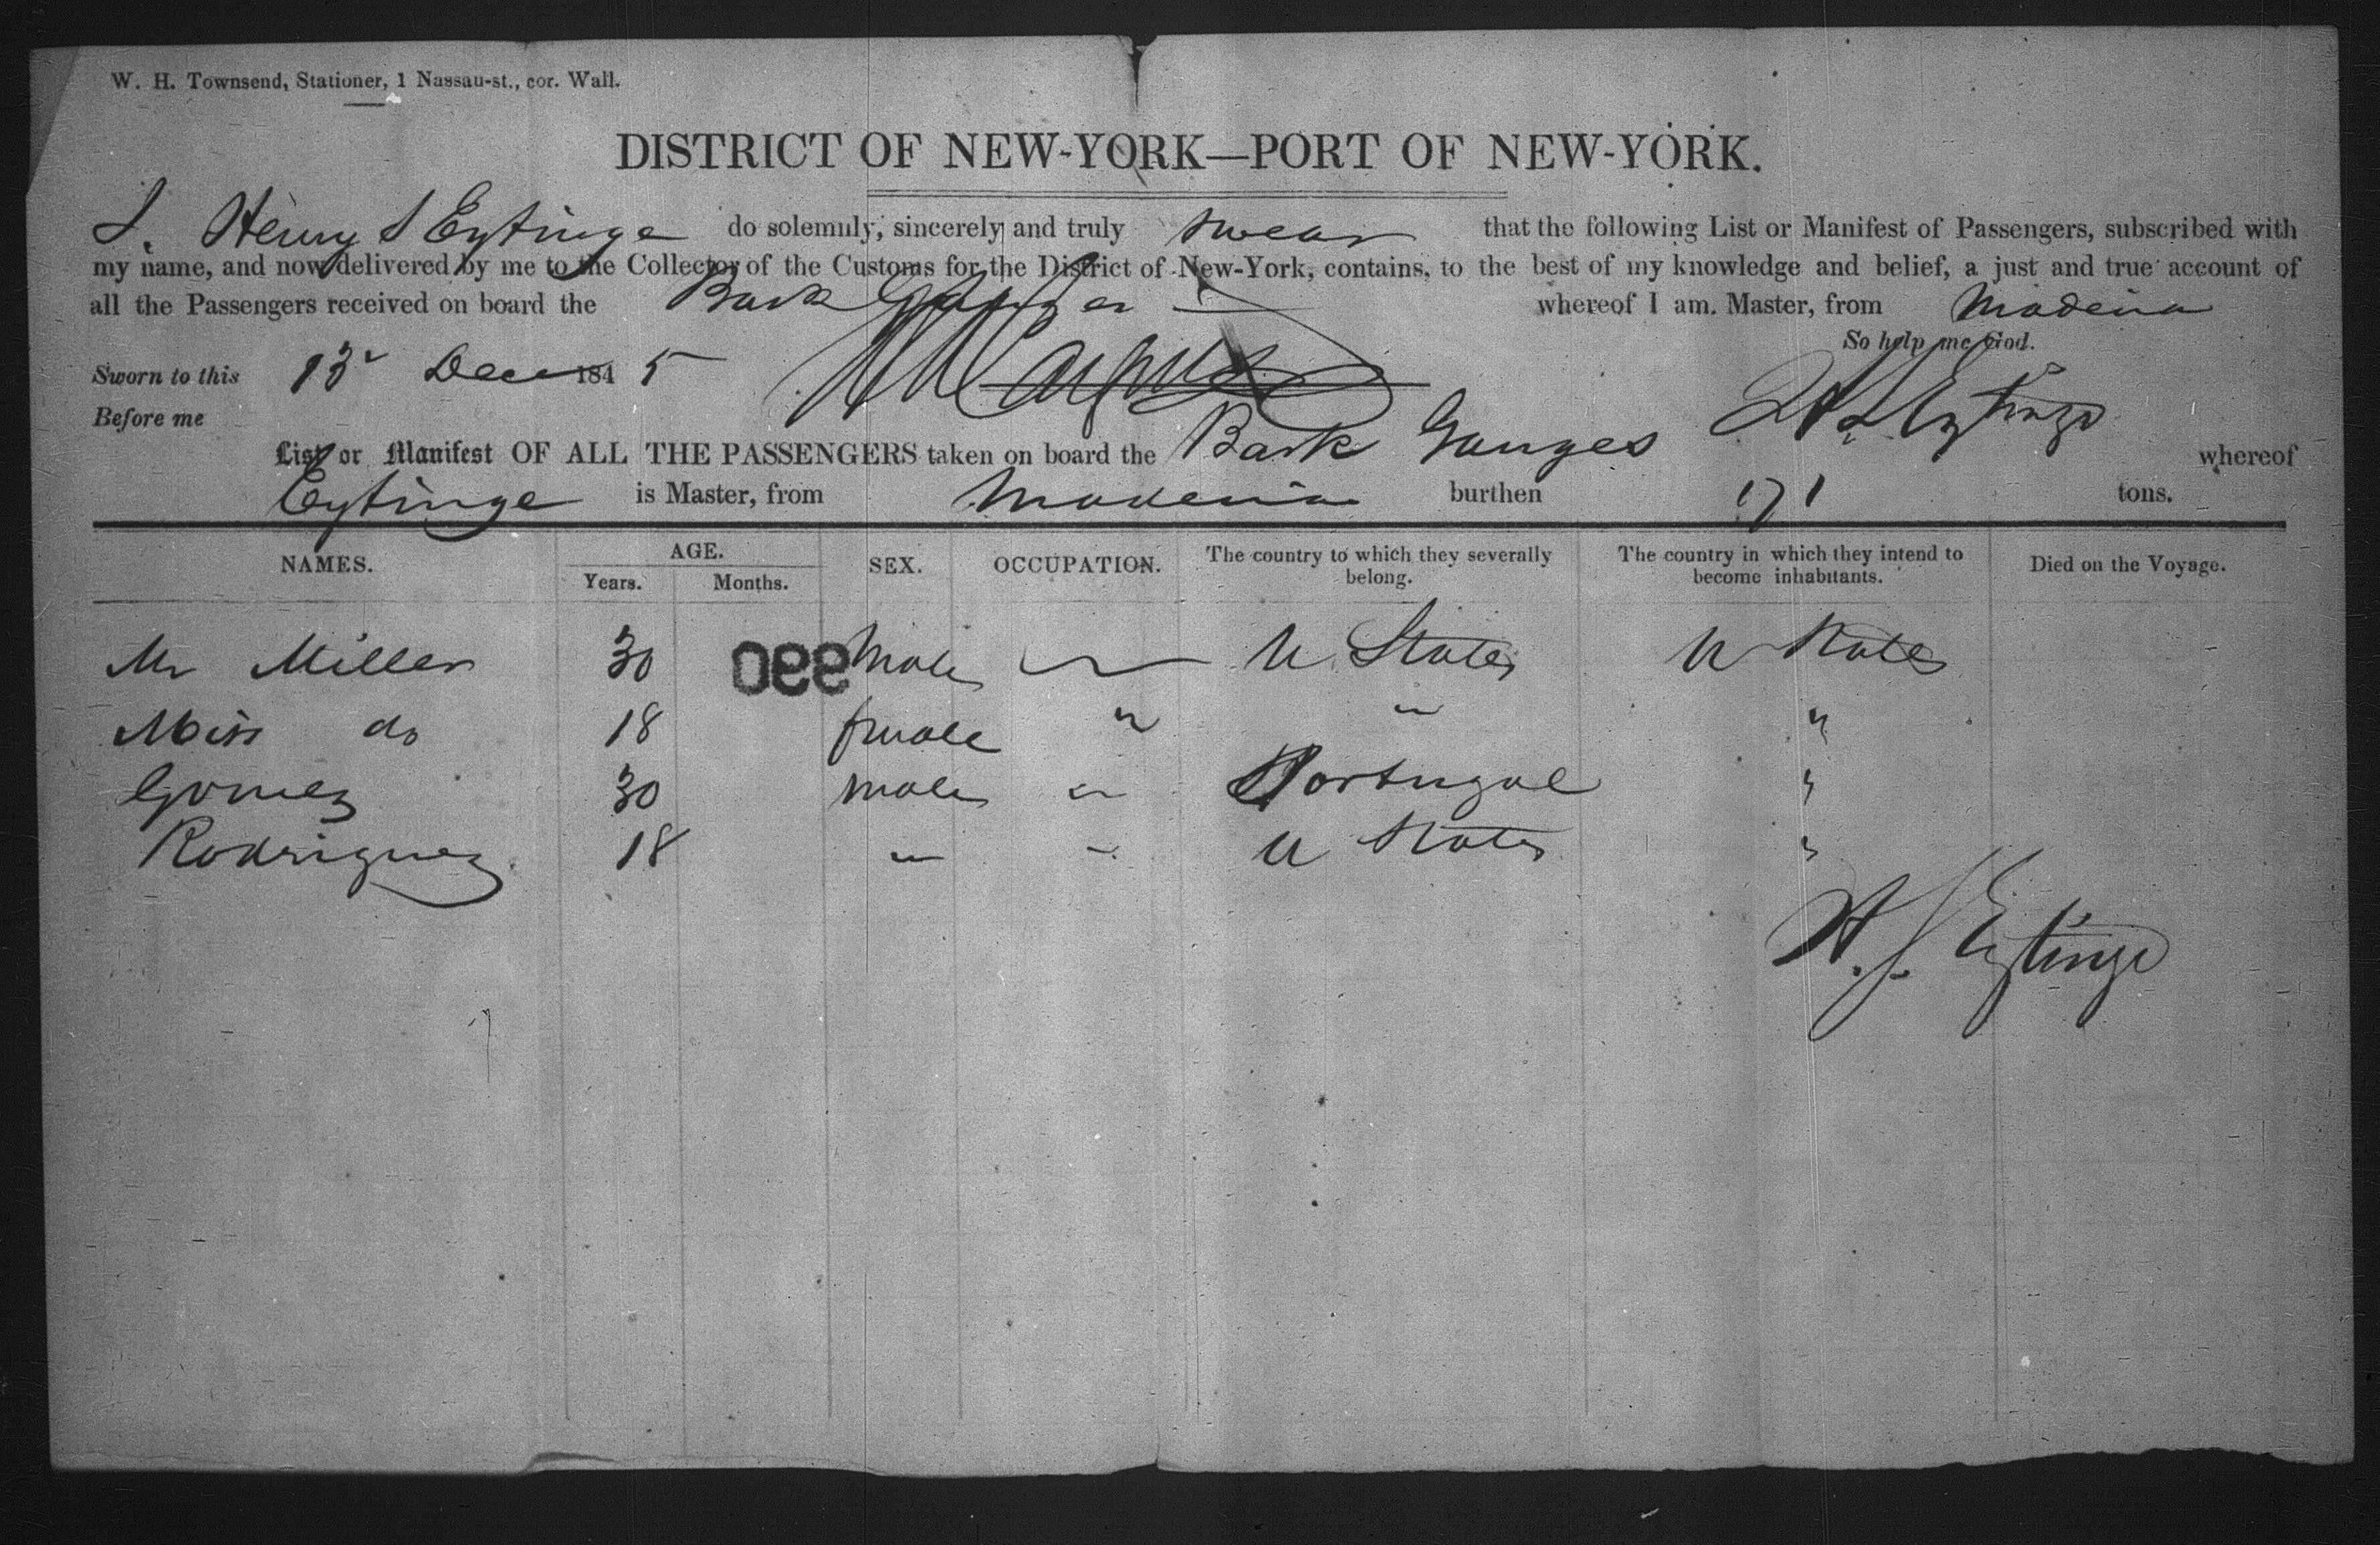 W. H. Townsend, Stationer, 1 Nassau-st., cor. Wall.
DISTRICT OF NEW-YORK—PORT OF NEW-YORK.
I. Henry S Eytinge do solemnly, sincerely and truly swear that the following List or Manifest of Passengers, subscribed with
my name, and now delivered by me to the Collector of the Customs for the District of New-York, contains, to the best of my knowledge and belief, a just and true account of
all the Passengers received on board the Bark Ganges whereof I am Master, from Madeira
So help me God.
Sworn to this 13 Dec 1845
H S Eytinge
Before me
List or Manifest OF ALL THE PASSENGERS taken on board the Bark Ganges whereof
Eytinge is Master, from Madeira burthen 171 tons.
NAMES. AGE. SEX. OCCUPATION. The country to which they severally belong. The country in which they intend to become inhabitants. Died on the Voyage.
Years. Months.
Mr Miller 30 Male U States U States
990
Miss do 18 female " " "
Gomez 30 male " Portugal "
Rodriguez 18 " " U States "
H. S. Eytinge